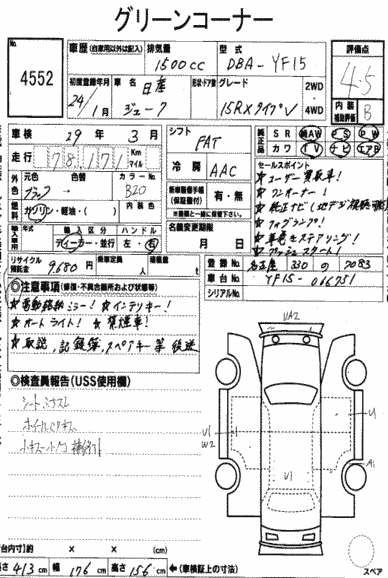 グリーンコーナー
No.
4552
車歴 (自家用以外は記入)
排気量
1500cc
型式
DBA-YF15
評価点
4.5
初度登録年月
24/1月
車名
日産
ジューク
形状・ドア数 グレード
15RXタイプV
2WD
4WD
内装
補助評価
B
車検
29年 3月
走行
78,171 Km
マイル
シフト
FAT
冷房
AAC
純正品
SR AW PS PW
カワ TV ナビ エアB
外色
元色
色替
カラーNo
ブラック
B20
内装色
燃料
ガソリン・軽油・( )
新車整備手帳
(保証書付)
有・無
輸入区分 ハンドル
ディーラー・並行 左・右
名義変更期限
月 日
セールスポイント
★ユーザー買取車!
★ワンオーナー!
★純正ナビ(地デジ視聴可能)
★フォグランプ!
★革巻きステアリング!
★プッシュスタート!
リサイクル
預託金
9,680円
乗車定員
人
積載量
t
登録No
名古屋 330 の 7083
車台No
YF15-016751
シリアルNo
◎注意事項(修復・不具合個所および状態等)
★電動格納ミラー! ★インテリキー!
★オートライト! ★禁煙車!
★取説、記録簿、スペアキー等 後送
◎検査員報告(USS使用欄)
UA2
U1
W2
U1
U1
A1
台内寸)約 × × (cm)
長さ 413cm 幅 176cm 高さ 156cm
←(車検証上の寸法)
スペア